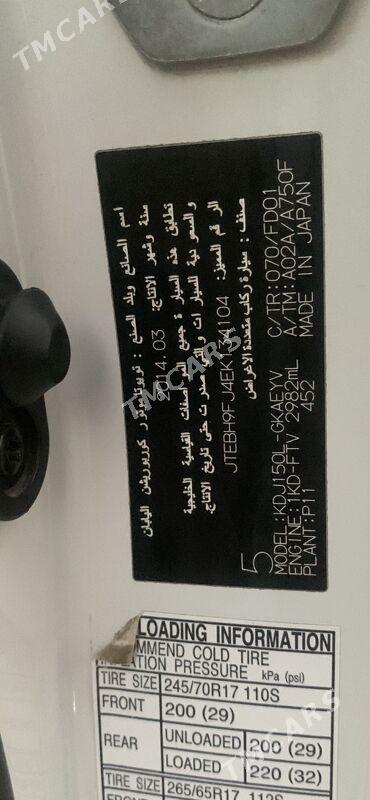 TMCARS
اسم الصانع وبلد الصنع : تويوتا موتور كوربوريشن اليابان
سنة وشهر الانتاج: 2014.03
تطابق هذه السيارة جميع المواصفات القياسية الخليجية
و السعودية للسيارات و التي صدرت حتى تاريخ الانتاج.
الرقم المميز: JTEBH9FJ4EK 4104
صنف : سيارة ركاب متعددة الاغراض
5
MODEL:KDJ150L-GKAEYV C/TR:070/FD01
ENGINE:1KD-FTV 2982mL A/TM:A02A/A750F
PLANT:P11 452 MADE IN JAPAN
TMCARS
LOADING INFORMATION
COLD TIRE
PRESSURE kPa (psi)
TIRE SIZE 245/70R17 110S
FRONT 200 (29)
REAR UNLOADED 200 (29)
LOADED 220 (32)
TIRE SIZE 265/65R17 112S
TMCARS